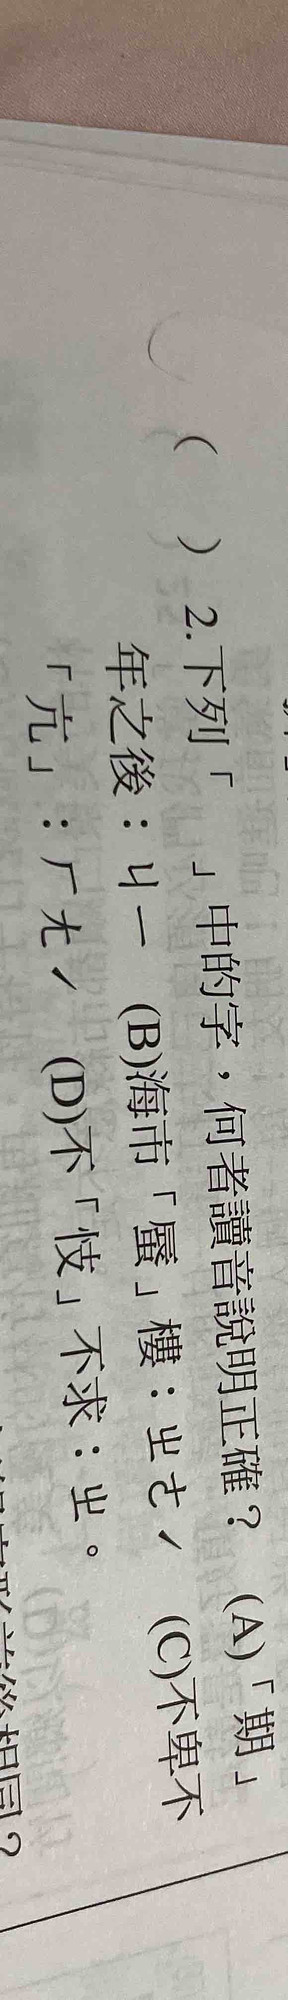 ( ) 2.下列「 」中的字，何者讀音說明正確？ (A)「期」
年之後：ㄐㄧ (B)海市「蜃」樓：ㄓㄜˊ (C)不卑不
「亢」：ㄏㄤˊ (D)不「忮」不求：ㄓ。